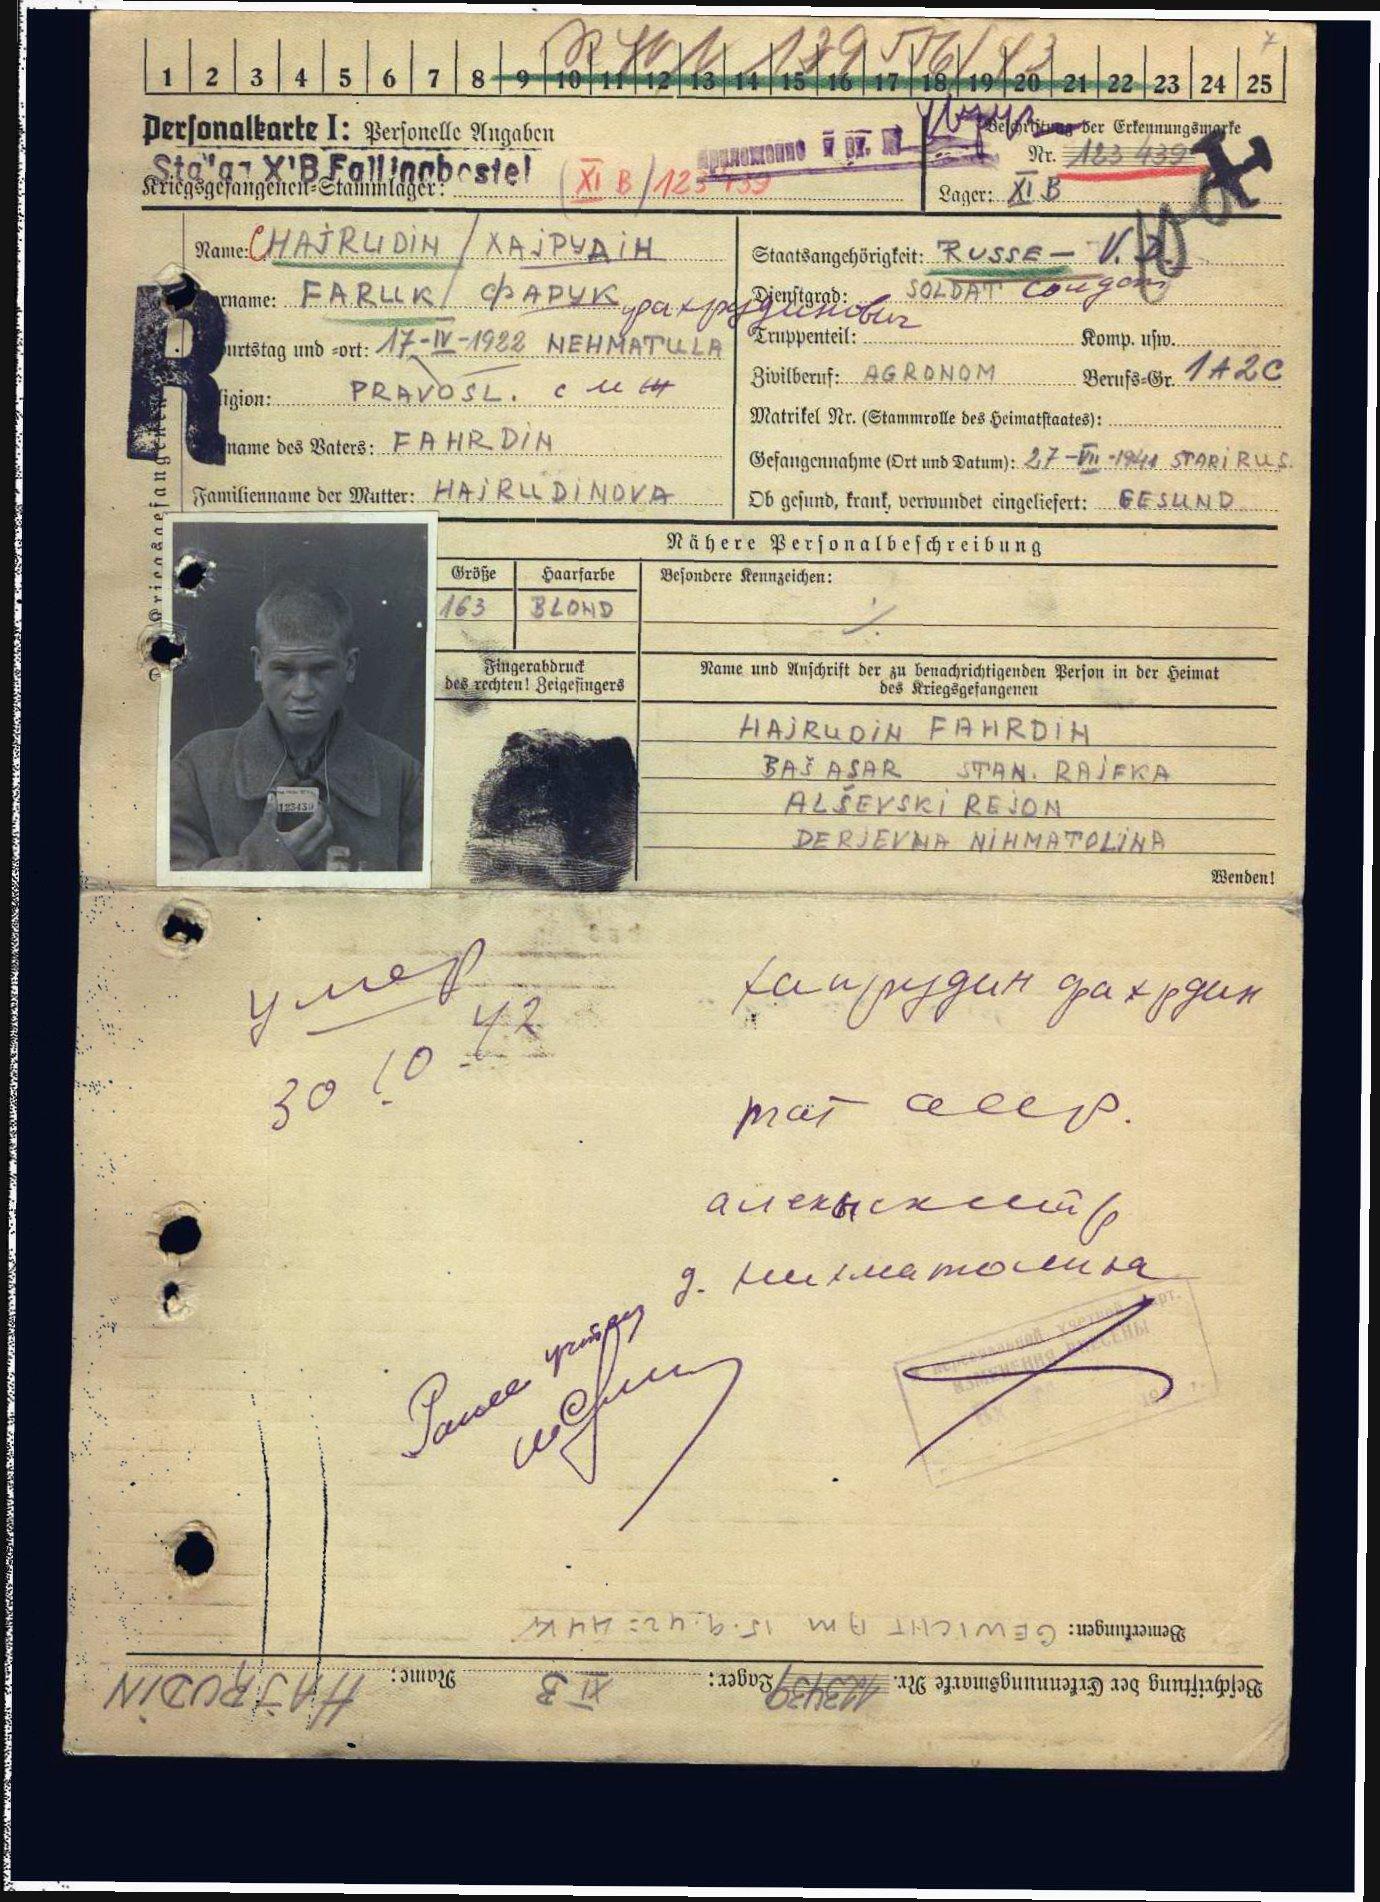 1 2 3 4 5 6 7 8 9 10 11 12 13 14 15 16 17 18 19 20 21 22 23 24 25
Personalkarte I: Personelle Angaben
Beschriftung der Erkennungsmarke
Nr. 123 439
Stalag XI B Fallingbostel
Kriegsgefangenen-Stammlager: (XI B) 123 439
Lager: XI B
Name: CHAJRUDIN / ХАЈРУДІН
Staatsangehörigkeit: RUSSE
Vorname: FARUK / ФАРУК Фахрудинович
Dienstgrad: SOLDAT солдат
Truppenteil: Komp. usw.
Geburtstag und -ort: 17-IV-1922 NEHMATULA
Zivilberuf: AGRONOM Berufs-Gr. 1A2C
Religion: PRAVOSL.
Matrikel Nr. (Stammrolle des Heimatstaates):
Vorname des Vaters: FAHRDIN
Gefangennahme (Ort und Datum): 27-VII-1941 STARI RUS.
Familienname der Mutter: HAJRUDINOVA
Ob gesund, krank, verwundet eingeliefert: GESUND
R
Nähere Personalbeschreibung
Größe Haarfarbe Besondere Kennzeichen:
163 BLOND ./.
Fingerabdruck
des rechten! Zeigefingers
Name und Anschrift der zu benachrichtigenden Person in der Heimat
des Kriegsgefangenen
HAJRUDIN FAHRDIN
BAŠ ASAR STAN. RAJFKA
ALŠEVSKI REJON
DERJEVNA NIHMATOLINA
123439
Wenden!
умер
30 10 42
хайрудин фахрдин
тат асср.
д. нихматолина
Ранее
ИЗМЕНЕНИЯ ВНЕСЕНЫ
Bemerkungen: GEWICHT AM 15.9.42= 44 K
Beschriftung der Erkennungsmarke Nr. 123439 Lager: XI B Name: HAJRUDIN